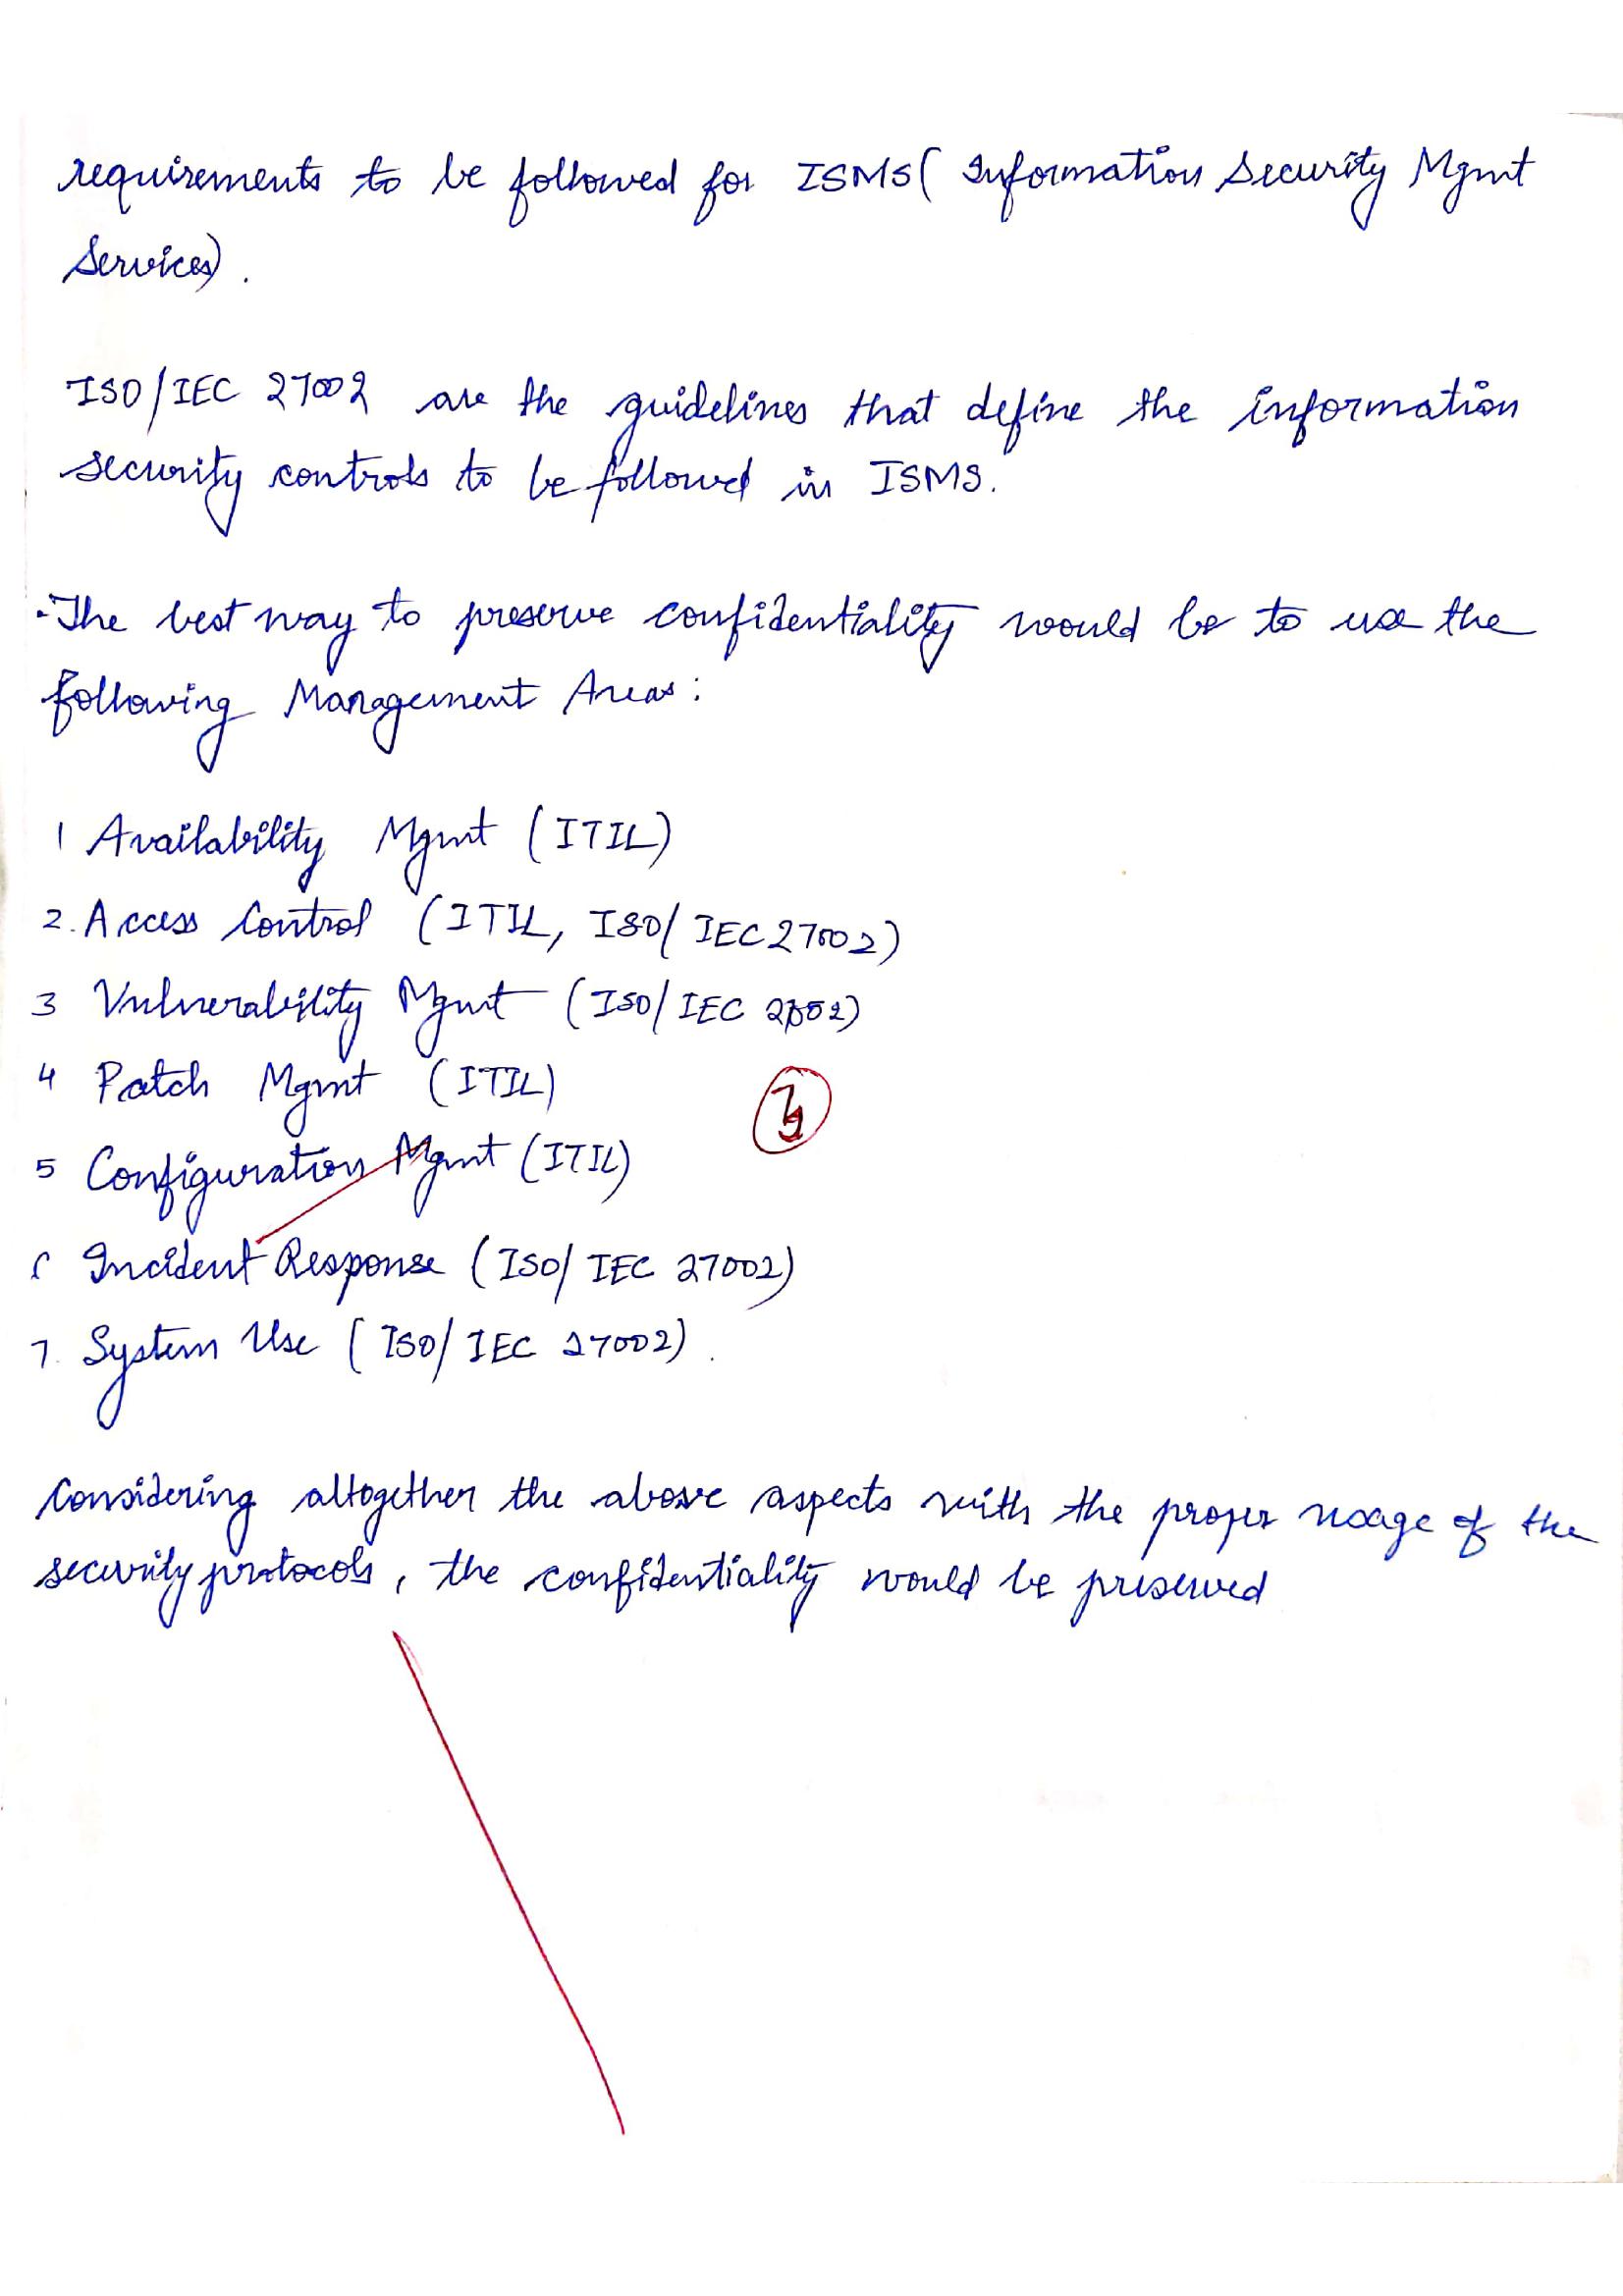 requirements to be followed for ISMS( Information Security Mgmt
Services).
ISO/IEC 27002 are the guidelines that define the information
security controls to be followed in ISMS.
·The best way to preserve confidentiality would be to use the
following Management Areas:
1 Availability Mgmt (ITIL)
2. Access Control (ITIL, ISO/IEC 27002)
3 Vulnerability Mgmt (ISO/IEC 27002)
4 Patch Mgmt (ITIL)
5 Configuration Mgmt (ITIL)
6 Incident Response (ISO/IEC 27002)
7. System Use (ISO/IEC 27002).
Considering altogether the above aspects with the proper usage of the
security protocols, the confidentiality would be preserved